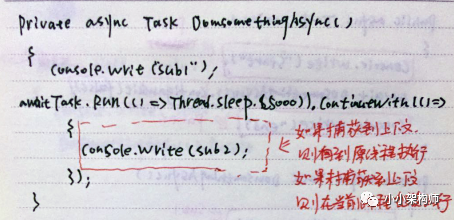 private async Task DomsomethingAsync()
{
console.write("sub1");
awaitTask.Run(() => Thread.sleep(5000)).Continuewith(()=>
{
console.write(sub2);
});
}
如果捕获到上下文
则得到原线程执行
如果捕获到上下文
则在当前线程上执行
小小架构师